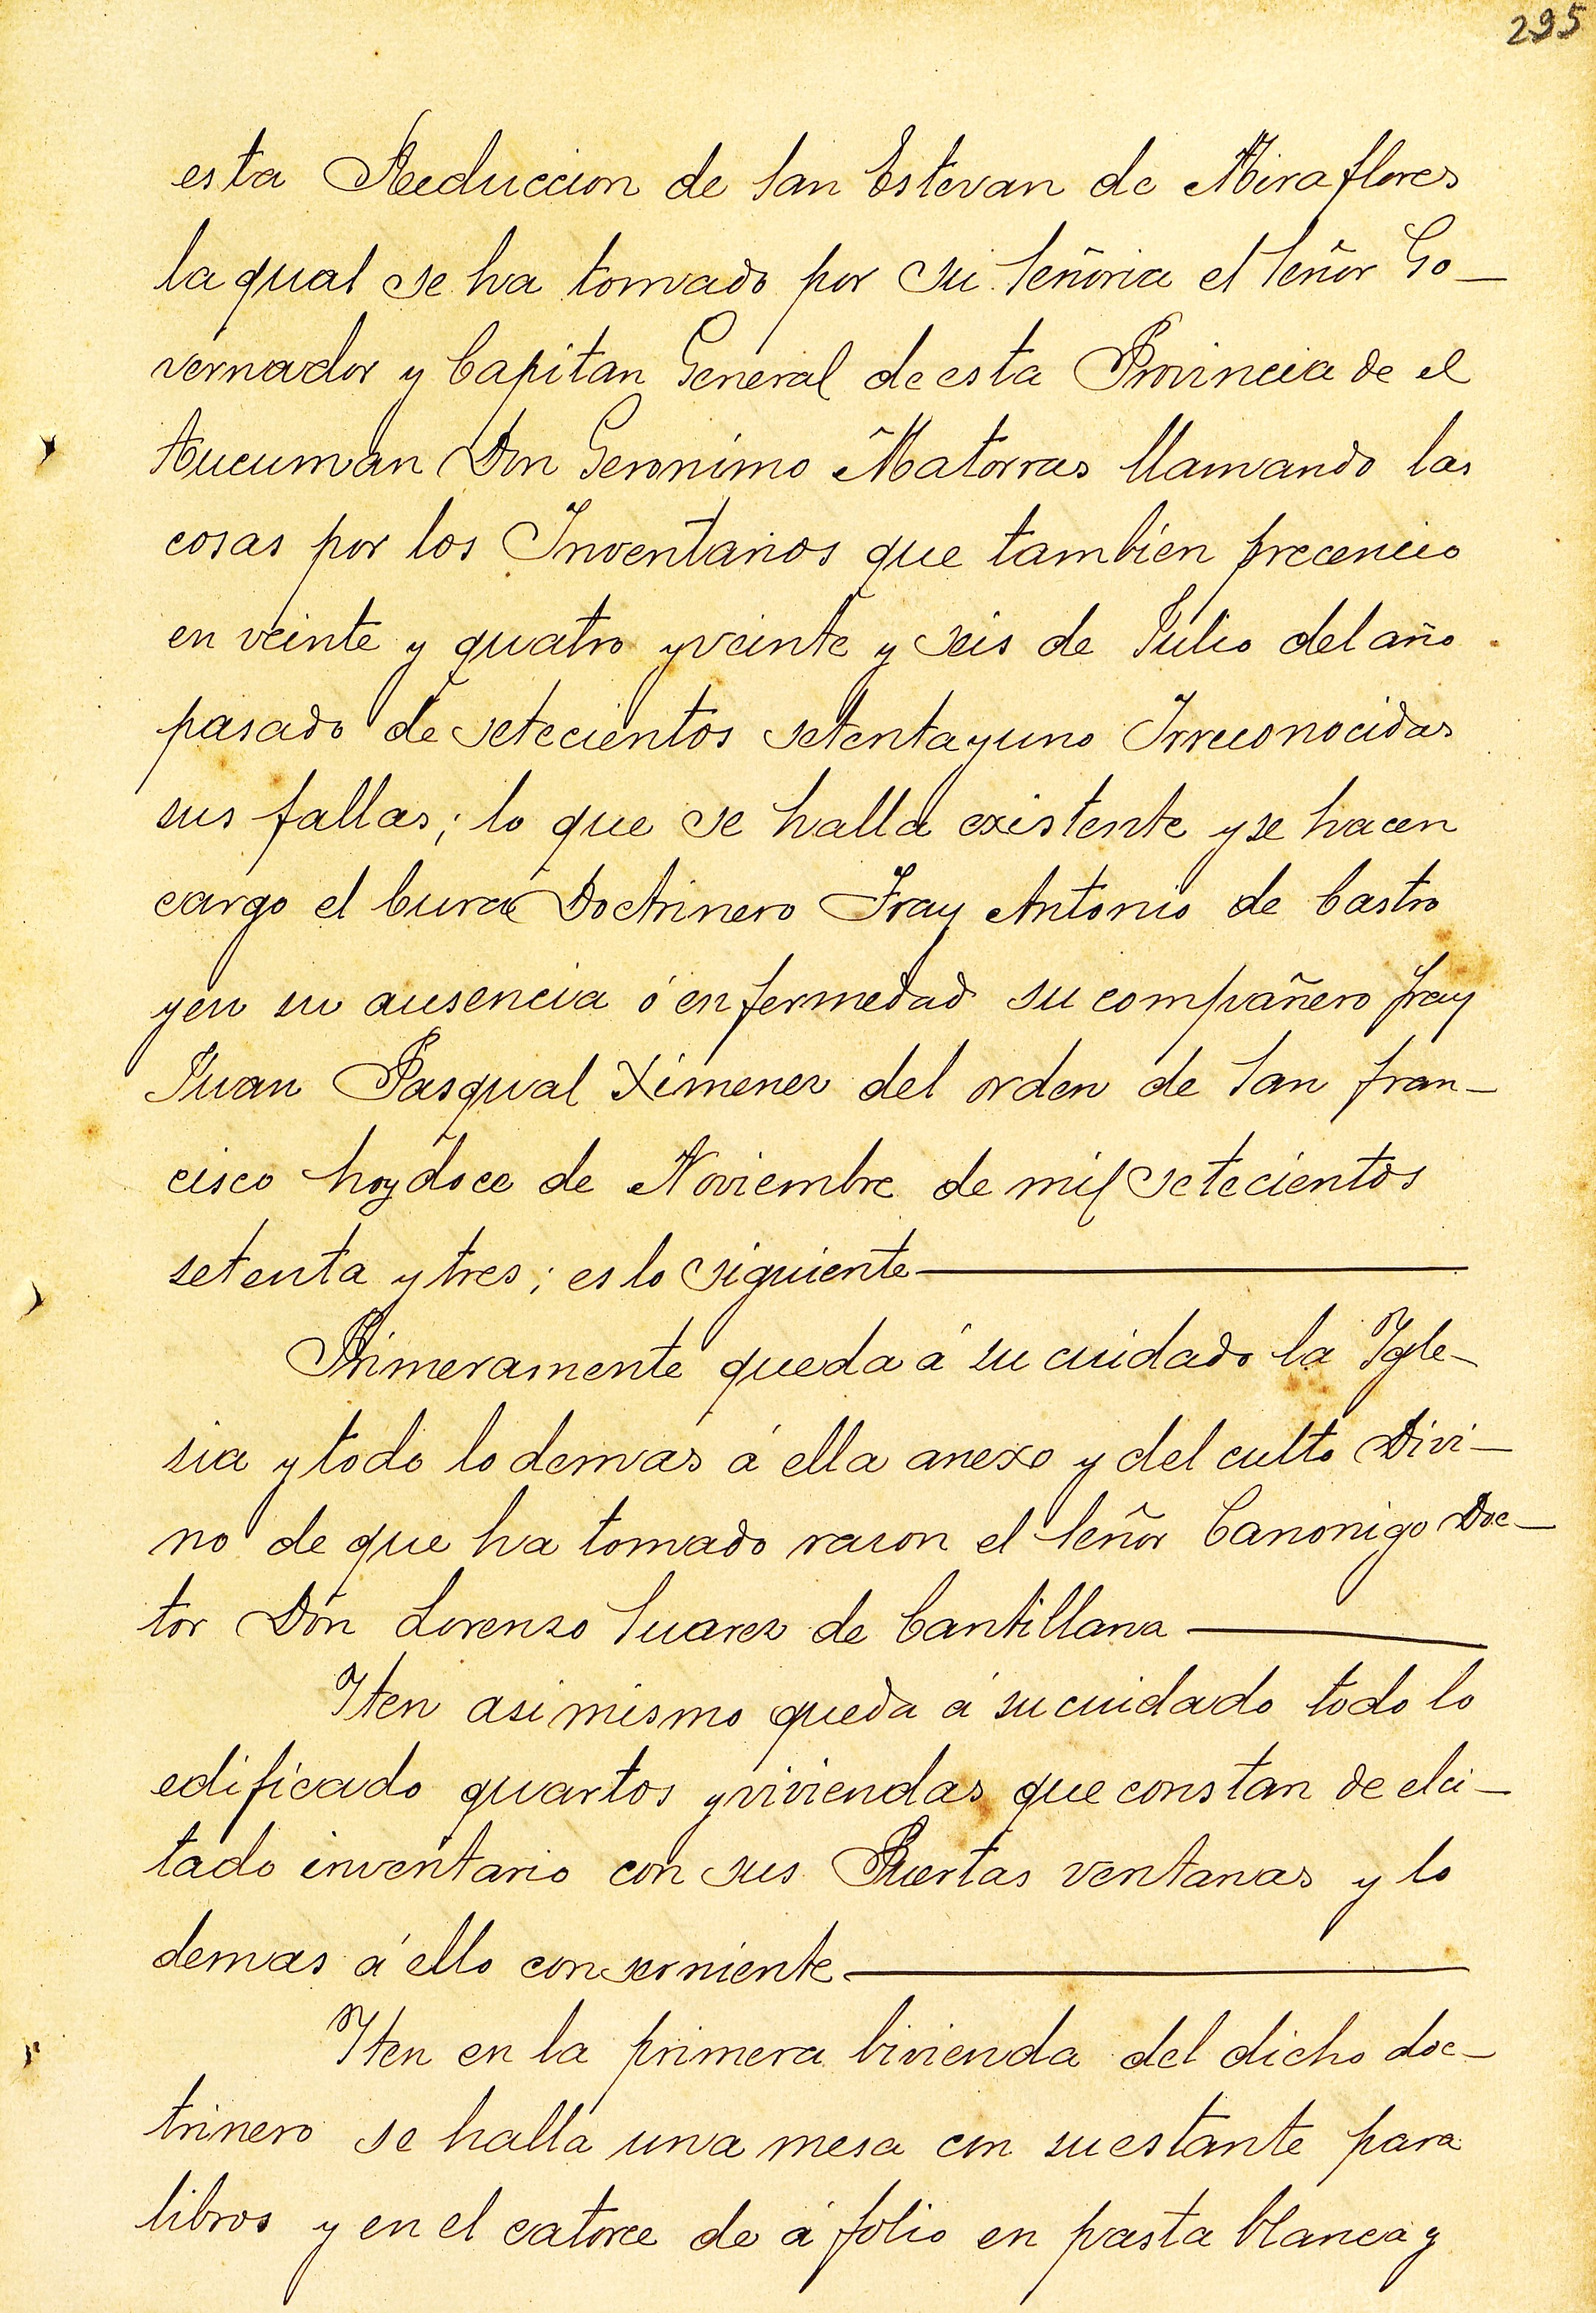 295
esta Reduccion de San Estevan de Miraflores
la qual se ha tomado por su Señoria el Señor Go-
vernador y Capitan General de esta Provincia de el
Tucuman Don Geronimo Matorras llamando las
cosas por los Inventarios que tambien precencio
en veinte y quatro y veinte y seis de Julio del año
pasado de setecientos setenta y uno Irreconocidas
sus fallas; lo que se halla existente y se hacen
cargo el Cura Doctrinero Fray Antonio de Castro
y en su ausencia ó enfermedad su compañero fray
Juan Pasqual Ximenez del orden de San fran-
cisco hoy doce de Noviembre de mil setecientos
setenta y tres; es lo siguiente
Primeramente queda á su cuidado la Igle-
sia y todo lo demas á ella anexo y del culto Divi-
no de que ha tomado razon el Señor Canonigo Doc-
tor Don Lorenzo Suarez de Cantillana
Iten asi mismo queda á su cuidado todo lo
edificado quartos y viviendas que constan de el ci-
tado inventario con sus Puertas ventanas y lo
demas á ello conserniente
Iten en la primera bivienda del dicho doc-
trinero se halla una mesa con su estante para
libros y en el catorce de á folio en pasta blanca y